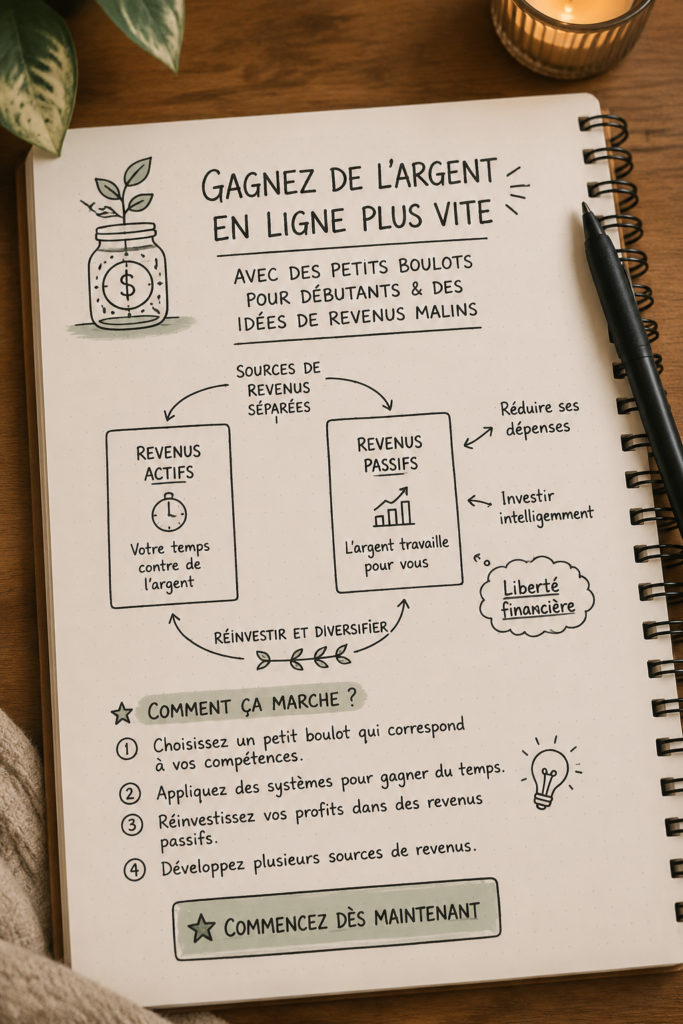 GAGNEZ DE L'ARGENT
EN LIGNE PLUS VITE
AVEC DES PETITS BOULOTS
POUR DÉBUTANTS & DES
IDÉES DE REVENUS MALINS
$
SOURCES DE
REVENUS
SÉPARÉES
REVENUS
ACTIFS
Votre temps
contre de
l'argent
REVENUS
PASSIFS
L'argent travaille
pour vous
Réduire ses
dépenses
Investir
intelligemment
Liberté
financière
RÉINVESTIR ET DIVERSIFIER
COMMENT ÇA MARCHE ?
1 Choisissez un petit boulot qui correspond
à vos compétences.
2 Appliquez des systèmes pour gagner du temps.
3 Réinvestissez vos profits dans des revenus
passifs.
4 Développez plusieurs sources de revenus.
COMMENCEZ DÈS MAINTENANT